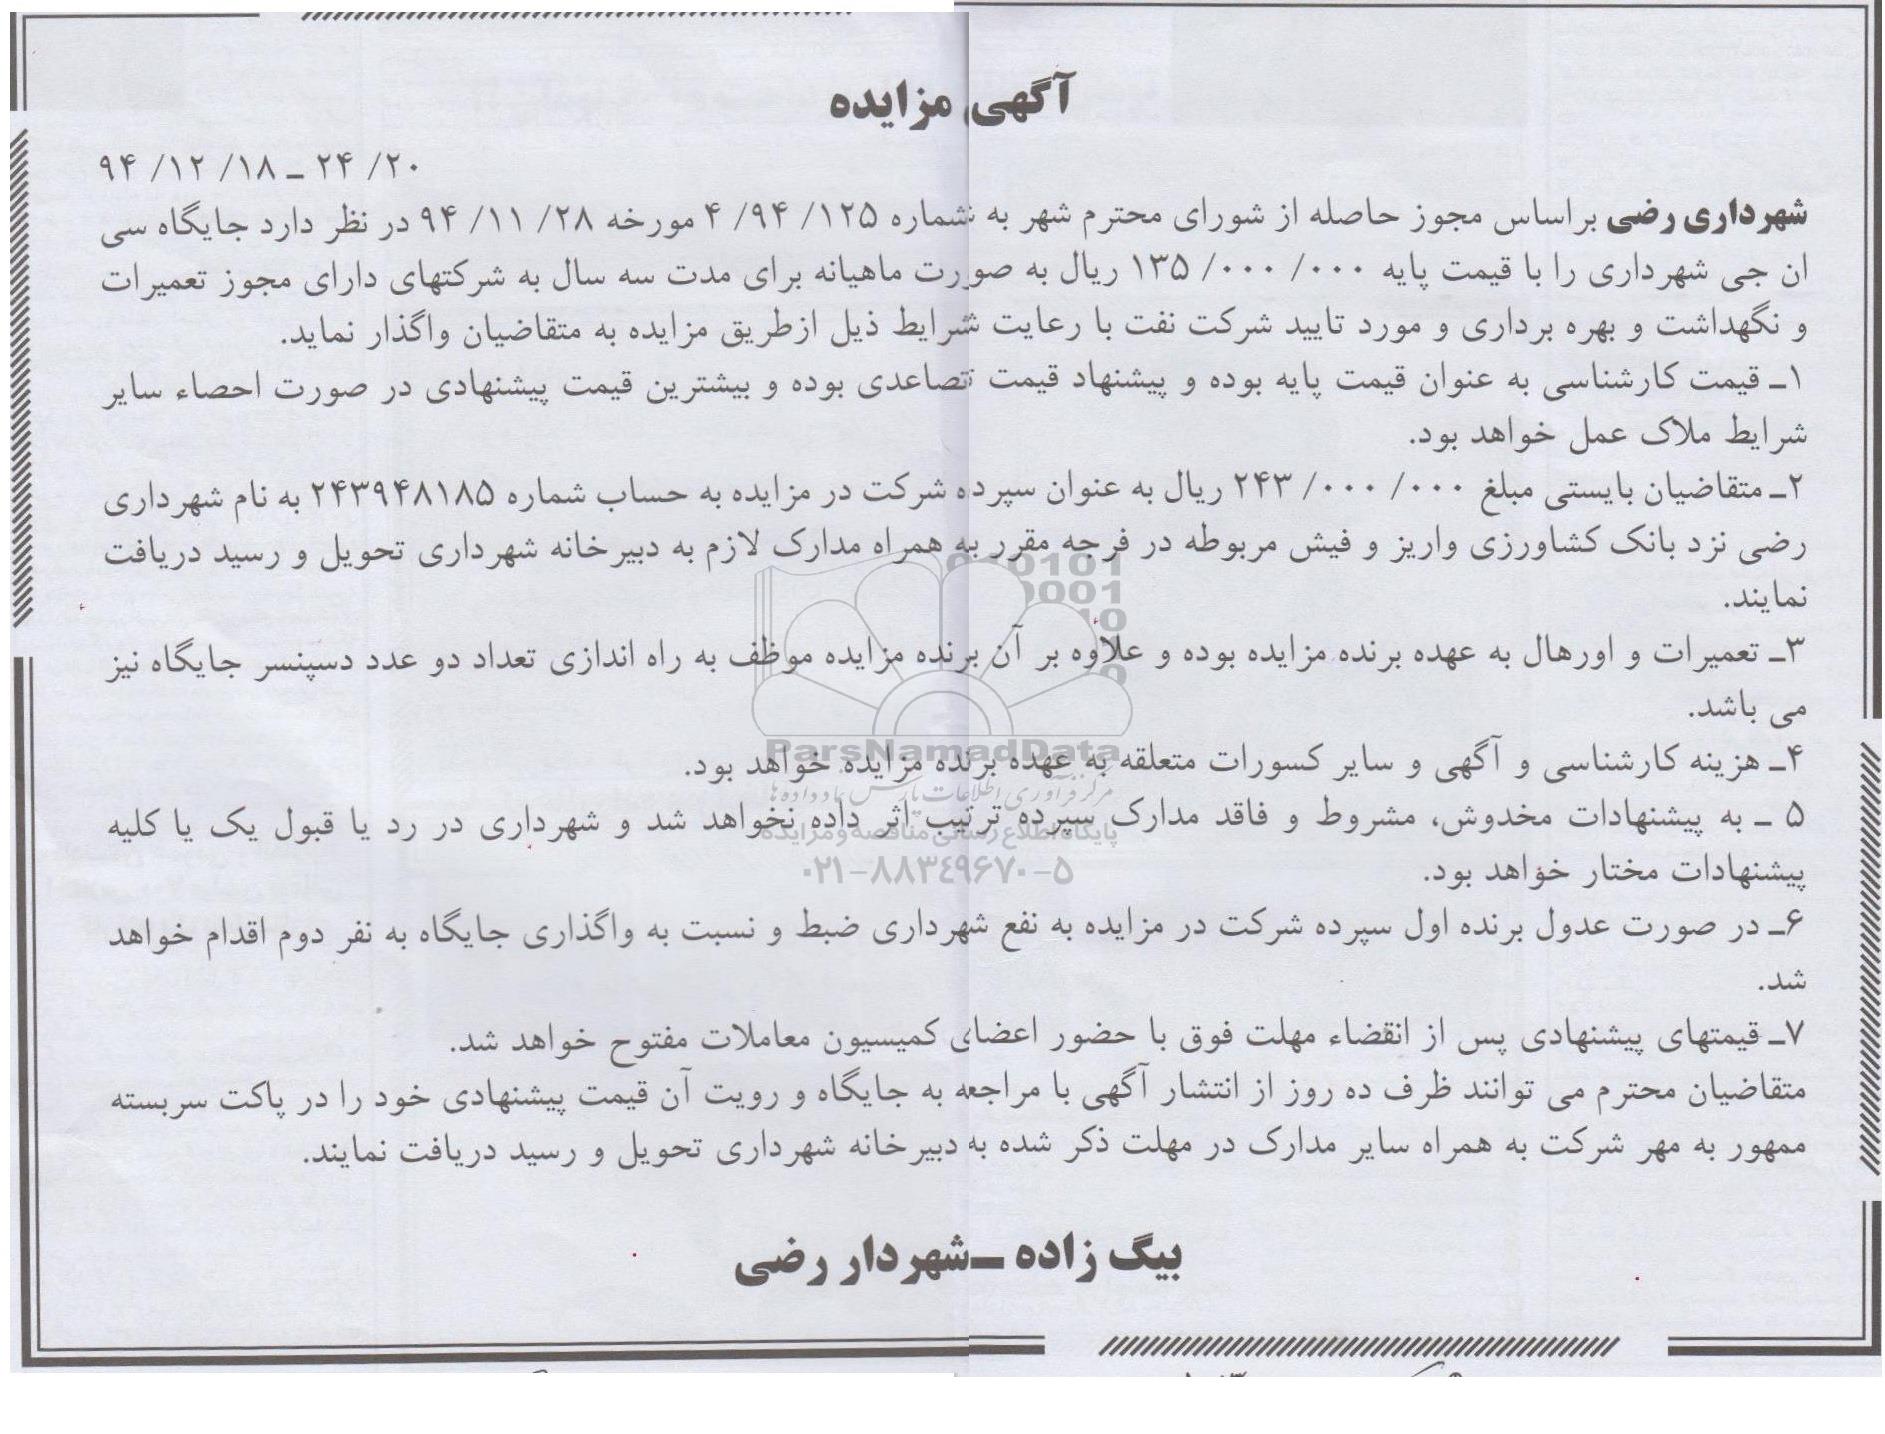 آگهی مزایده
۲۰/ ۲۴ ـ ۱۸/ ۱۲/ ۹۴
شهرداری رضی براساس مجوز حاصله از شورای محترم شهر به شماره ۱۲۵/ ۹۴/ ۴ مورخه ۲۸/ ۱۱/ ۹۴ در نظر دارد جایگاه سی
ان جی شهرداری را با قیمت پایه ۰۰۰/ ۰۰۰/ ۱۳۵ ریال به صورت ماهیانه برای مدت سه سال به شرکتهای دارای مجوز تعمیرات
و نگهداشت و بهره برداری و مورد تایید شرکت نفت با رعایت شرایط ذیل ازطریق مزایده به متقاضیان واگذار نماید.
۱ـ قیمت کارشناسی به عنوان قیمت پایه بوده و پیشنهاد قیمت تصاعدی بوده و بیشترین قیمت پیشنهادی در صورت احصاء سایر
شرایط ملاک عمل خواهد بود.
۲ـ متقاضیان بایستی مبلغ ۰۰۰/ ۰۰۰/ ۲۴۳ ریال به عنوان سپرده شرکت در مزایده به حساب شماره ۲۴۳۹۴۸۱۸۵ به نام شهرداری
رضی نزد بانک کشاورزی واریز و فیش مربوطه در فرجه مقرر به همراه مدارک لازم به دبیرخانه شهرداری تحویل و رسید دریافت
نمایند.
۳ـ تعمیرات و اورهال به عهده برنده مزایده بوده و علاوه بر آن برنده مزایده موظف به راه اندازی تعداد دو عدد دسپنسر جایگاه نیز
می باشد.
۴ـ هزینه کارشناسی و آگهی و سایر کسورات متعلقه به عهده برنده مزایده خواهد بود.
ParsNamadData
مرکز فرآوری اطلاعات پارس نماد داده ها
۵ ـ به پیشنهادات مخدوش، مشروط و فاقد مدارک سپرده ترتیب اثر داده نخواهد شد و شهرداری در رد یا قبول یک یا کلیه
پایگاه اطلاع رسانی مناقصه و مزایده
پیشنهادات مختار خواهد بود.
۰۲۱-۸۸۳۴۹۶۷۰-۵
۶ـ در صورت عدول برنده اول سپرده شرکت در مزایده به نفع شهرداری ضبط و نسبت به واگذاری جایگاه به نفر دوم اقدام خواهد
شد.
۷ـ قیمتهای پیشنهادی پس از انقضاء مهلت فوق با حضور اعضای کمیسیون معاملات مفتوح خواهد شد.
متقاضیان محترم می توانند ظرف ده روز از انتشار آگهی با مراجعه به جایگاه و رویت آن قیمت پیشنهادی خود را در پاکت سربسته
ممهور به مهر شرکت به همراه سایر مدارک در مهلت ذکر شده به دبیرخانه شهرداری تحویل و رسید دریافت نمایند.
بیگ زاده ـ شهردار رضی